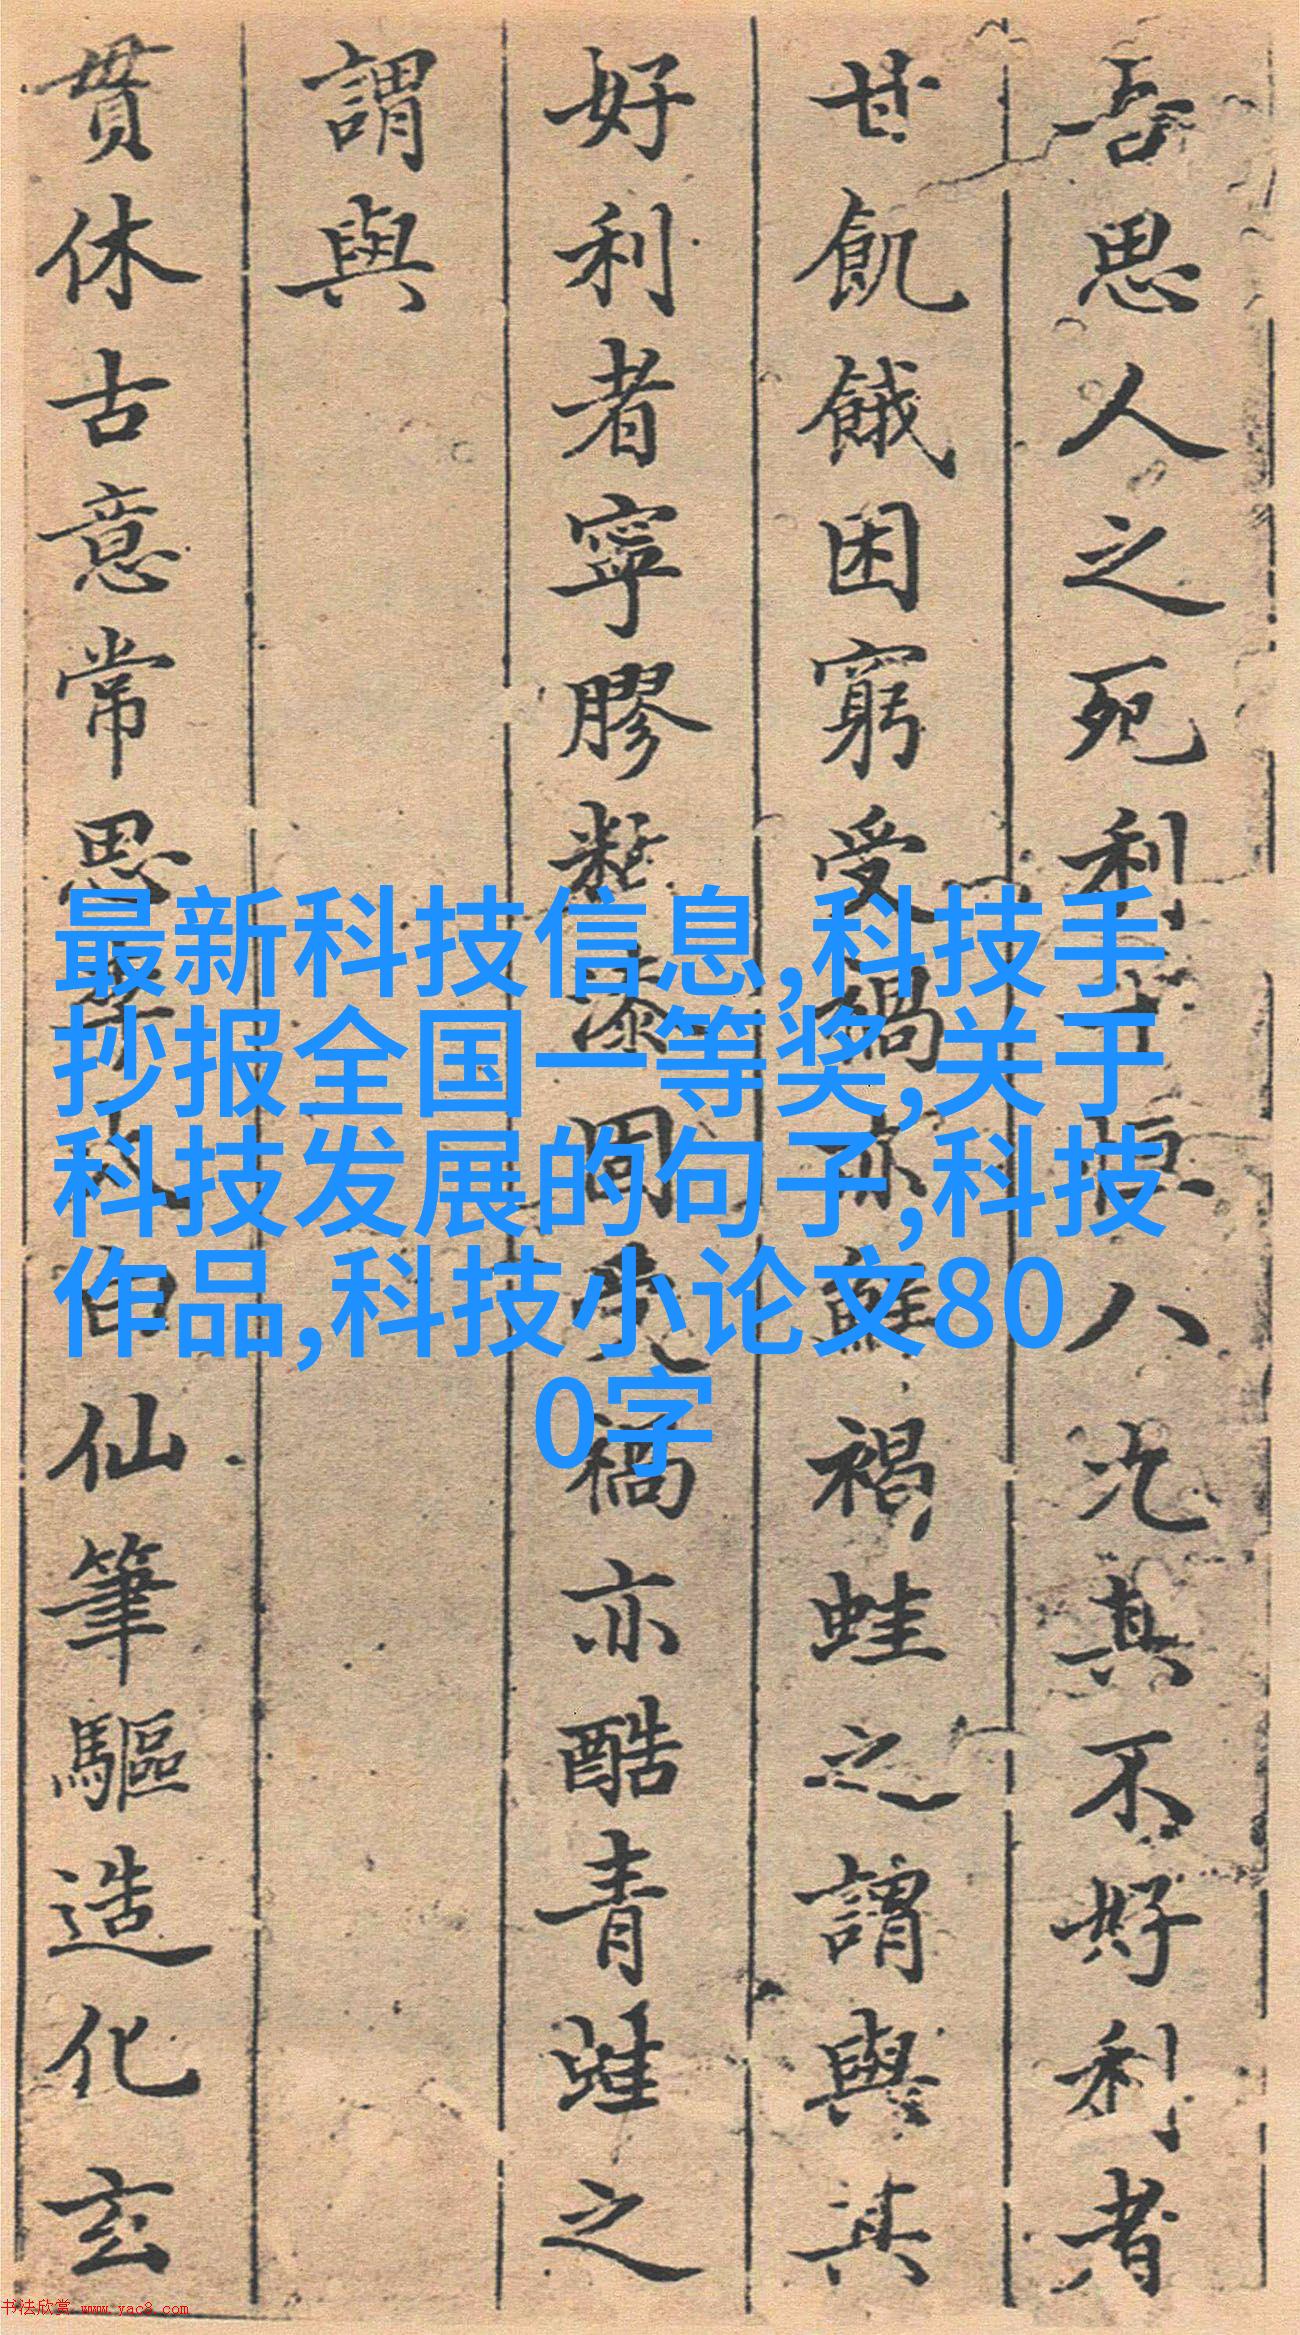 吾思人之死利十恒八九其不好利者
甘飢餓困窮受禍亦鮮褐蛙之謂與其
好利者寧膠黏漆固乎禍亦酷青蛙之
謂與
貫休古意常思李太白仙筆驅造化玄
最新科技信息,科技手
抄报全国一等奖,关于
科技发展的句子,科技
作品,科技小论文80
0字
书法欣赏 www.yac8.com